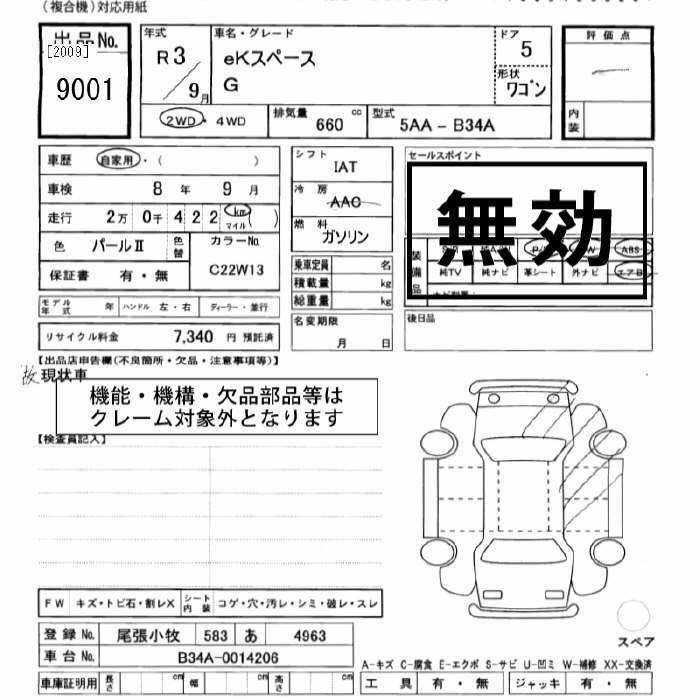 (複合機)対応用紙
出品No.
[2009]
9001
年式
R 3
9月
車名・グレード
eKスペース
G
ドア
5
形状
ワゴン
評価点
内装
2WD ・ 4WD
排気量 660 cc
型式 5AA - B34A
車歴 自家用・( )
車検 8 年 9 月
走行 2万 0千 4 2 2 km マイル ( )
色 パールⅡ 色替
カラーNo. C22W13
保証書 有・無
モデル年式 年 ハンドル 左・右 ディーラー・並行
リサイクル料金 7,340 円 預託済
シフト
IAT
冷房
AAC
燃料
ガソリン
乗車定員 名
積載量 kg
総重量 kg
名変期限
月 日
セールスポイント
無効
装備品
ABS
純TV 純ナビ 革シート 外ナビ エアB
後日品
【出品店申告欄(不良箇所・欠品・注意事項等)】
故 現状車
機能・機構・欠品部品等は
クレーム対象外となります
【検査員記入】
FW キズ・トビ石・割レX シート内装 コゲ・穴・汚レ・シミ・破レ・スレ
登録No. 尾張小牧 583 あ 4963
車台No. B34A-0014206
車庫証明用 長さ cm 幅 cm 高さ cm
スペア
A-キズ C-腐食 E-エクボ S-サビ U-凹ミ W-補修 XX-交換済
工具 有・無 ジャッキ 有・無